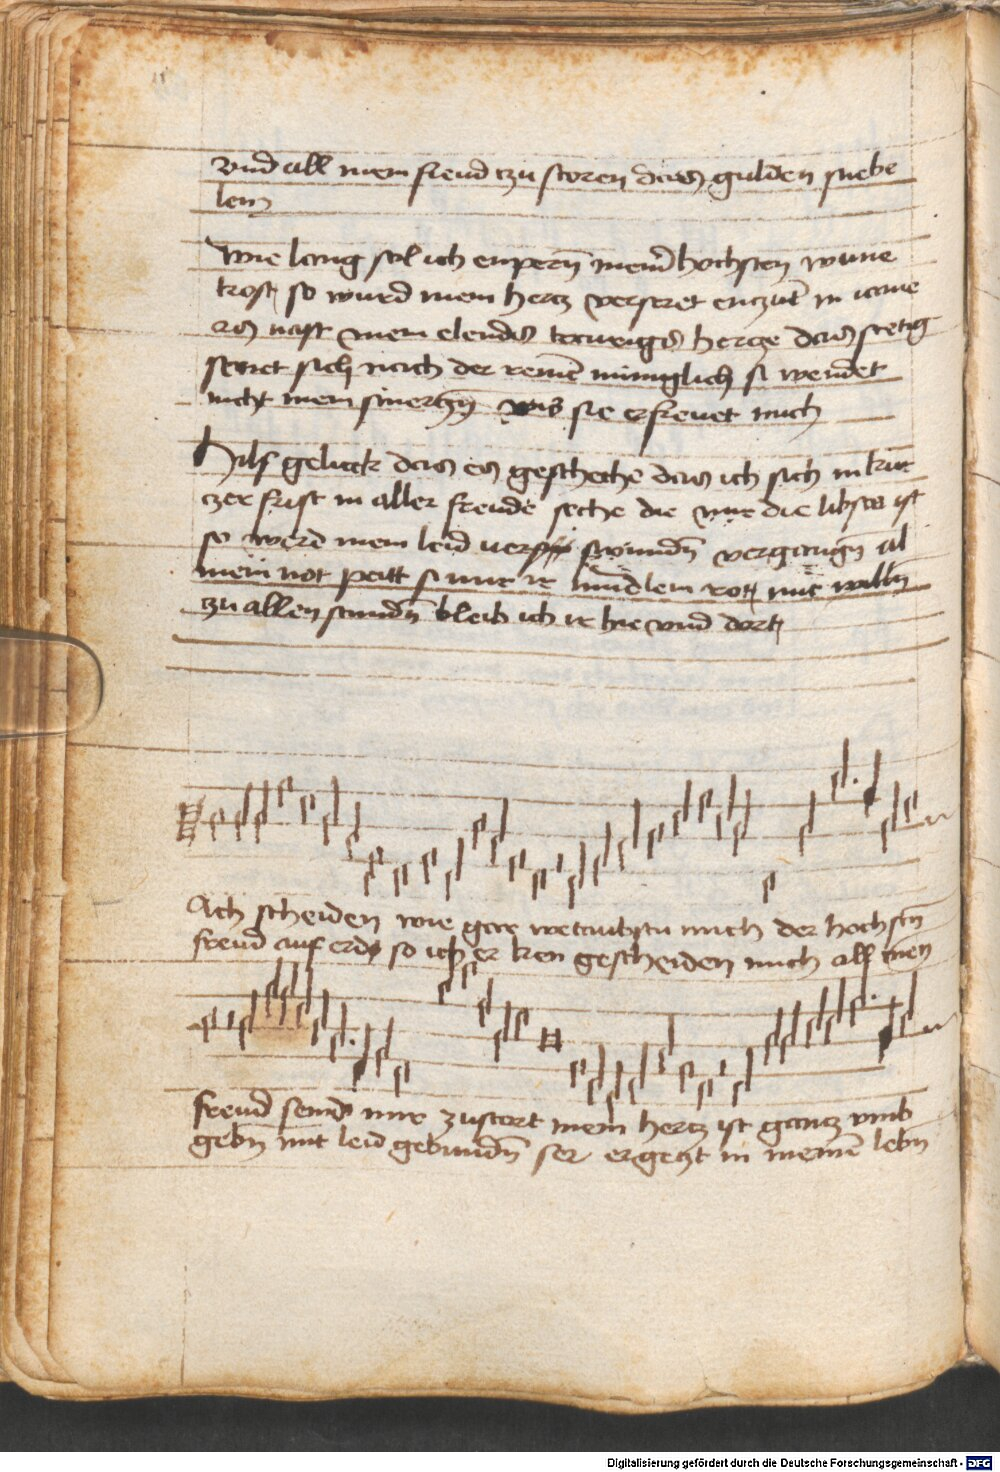 vnd all mein freud czu storen das gulden fuebe
lein
Wie lang sol ich enpern meins hochsten wune
trost so wurd mein hercz verseret enczut in iame
es naft mein elendes trauriges hercze das stetig
senet sich nach der reinen minniglich si wendet
nicht mein smerczn wis sie erfreuet mich
Hilf geluck das es gescheche das ich sich in kur
czer frist in aller freude seche die mir die libste ist
so werd mein leid verswundn vergangn al
mein not peitt si mir ir mundlein rot mit willn
zu allen stundn bleib ich ir hie vnd dort
Ach scheiden wie gar betrubstu mich der hochstn
freud auf erd so ich er ken gescheiden mich all mein
freud seind mir zustort mein hercz ist gancz vmb
gebn mit leid gebundn ser ergeczt in meinem lebn
Digitalisierung gefördert durch die Deutsche Forschungsgemeinschaft - DFG